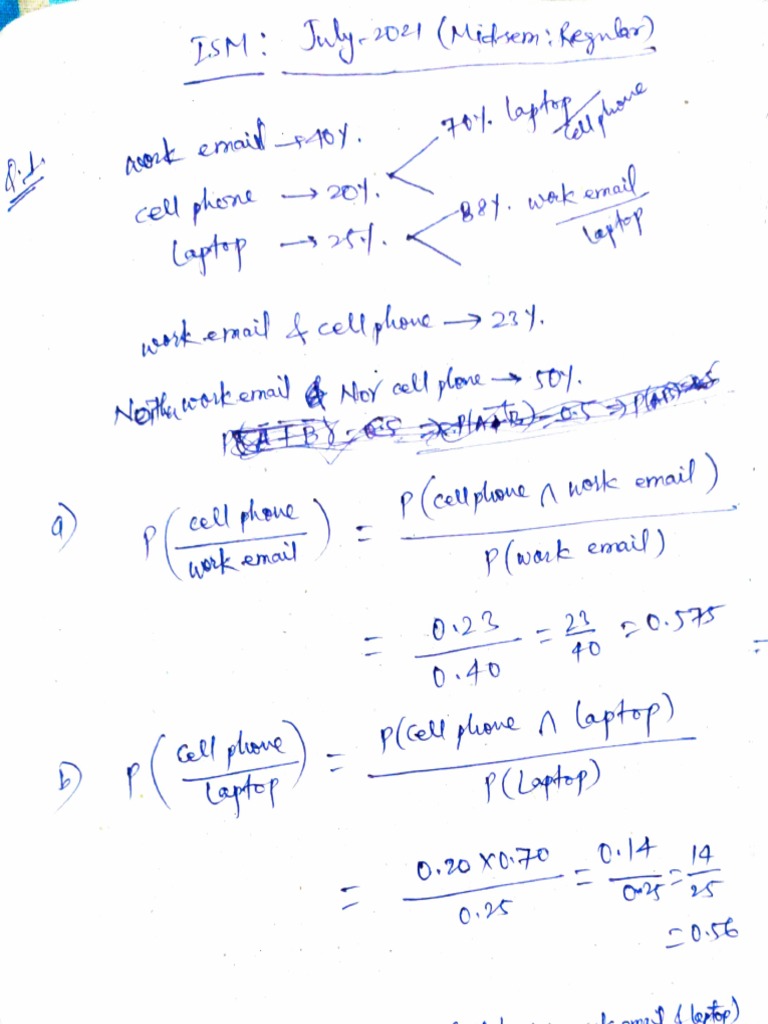 ISM: July-2021 (Midsem: Regular)
Q.1.
work email → 40%.
cell phone → 20%. 70% laptop/cell phone
laptop → 25%. 88%. work email/laptop
work email & cell phone → 23%.
Neither work email Nor cell phone → 50%.
a) P(cell phone/work email) = P(cell phone ∩ work email)/P(work email)
= 0.23/0.40 = 23/40 = 0.575
b) P(cell phone/Laptop) = P(cell phone ∩ laptop)/P(Laptop)
= 0.20 x 0.70/0.25 = 0.14/0.25 = 14/25
= 0.56
& laptop)